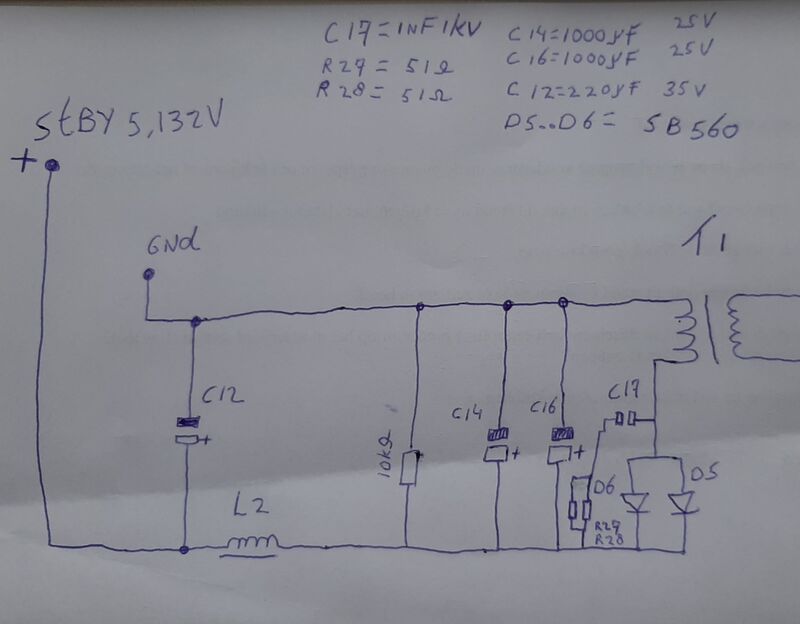 C17=1NF1KV
R27 = 51Ω
R28 = 51Ω
C14=1000µF 25V
C16=1000µF 25V
C12=220µF 35V
D5..D6= SB560
StBY 5,132V
+
GNd
T1
C12
+
L2
10kΩ
C14
+
C16
+
C17
D6
D5
R27
R28